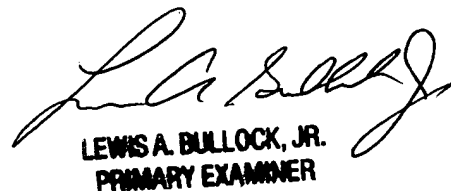 Lewis A Bullock Jr
LEWIS A. BULLOCK, JR.
PRIMARY EXAMINER